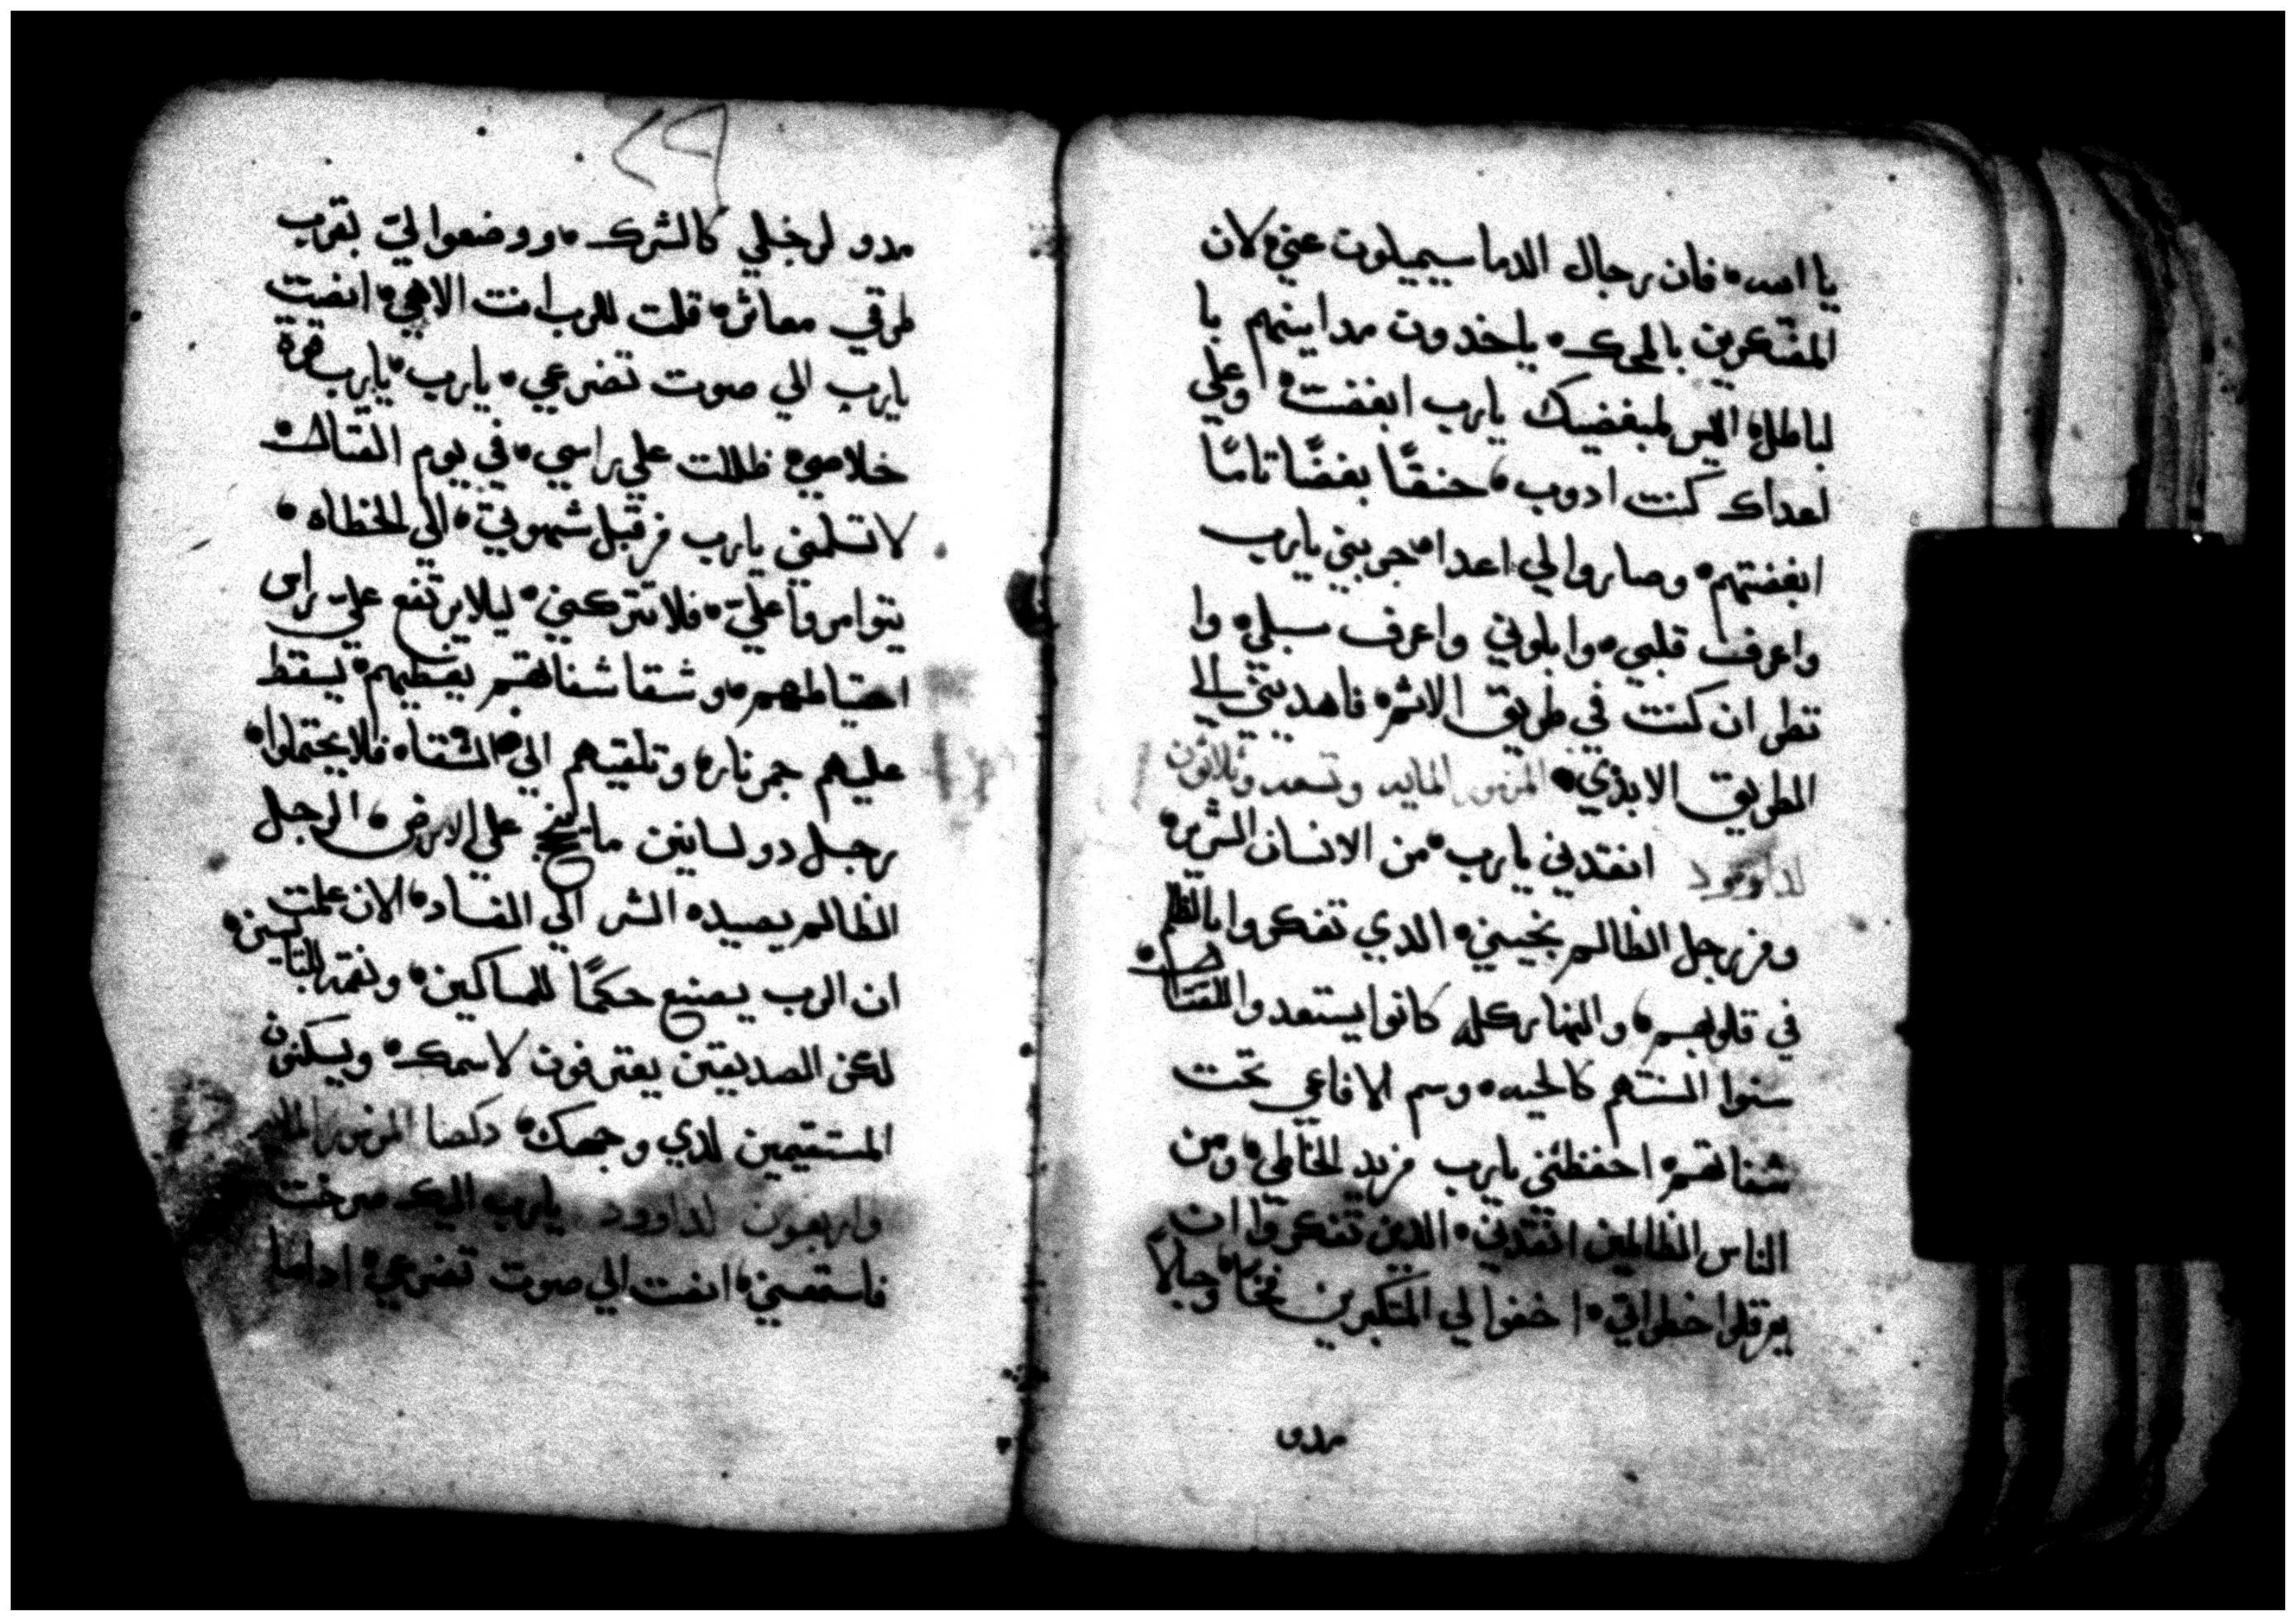 يا الله فان رجال الدما سيميلون عني لان
المفتكرين بالمحك ياخدون مداينهم با
لباطل اليس لمبغضيك يارب ابغضت وعلي
اعداك كنت ادوب حنقًا بغضًا تامًا
ابغضتهم وصاروا لي اعدا جربني يارب
واعرف قلبي وابلوني واعرف سبلي وا
نظر ان كنت في طريق الاثم فاهديني الي
الطريق الابدي المزمور المايه وتسعه وثلاثون
لداوود انقدني يارب من الانسان الشرير
ومن رجل الظالم نجيني الدي تفكروا بالظلم
في قلوبهم والنهار كله كانوا يستعدوا للقتال
سنوا السنتهم كالحيه وسم الافاعي تحت
شفاتهم احفظني يارب من يد الخاطي ومن
الناس الظالمين انقدني الدين تفكروا ان
يعرقلوا خطواتي اخفوا لي المتكبرين فخاخ وحبالاً
مدو
٢٩
مدو لرجلي كالشرك ووضعوا لي بقرب
طرقي معاثر قلت للرب انت الاهي انصت
يارب الي صوت تضرعي يارب يارب قوة
خلاصي ظللت علي راسي في يوم القتال
لا تسلمني يارب من قبل شهوتي الي الخطاه
يتوامروا علي فلا تتركني ليلا يرتفع علي راس
احتياطهم وشقا شفاتهم يغطيهم يسقط
عليهم جمر نار وتلقيهم الي الشقا فلا يحتملوا
رجل دو لسانين ما ينجح علي الارض الرجل
الظالم يصيده الشر الي الفساد الان علمت
ان الرب يصنع حكمًا للمساكين ونقمه للبايسين
لكن الصديقين يعترفون لاسمك ويسكنون
المستقيمين لدي وجهك دكصا المزمور المايه
واربعون لداوود يارب اليك صرخت
فاستمعني انصت الي صوت تضرعي اداما